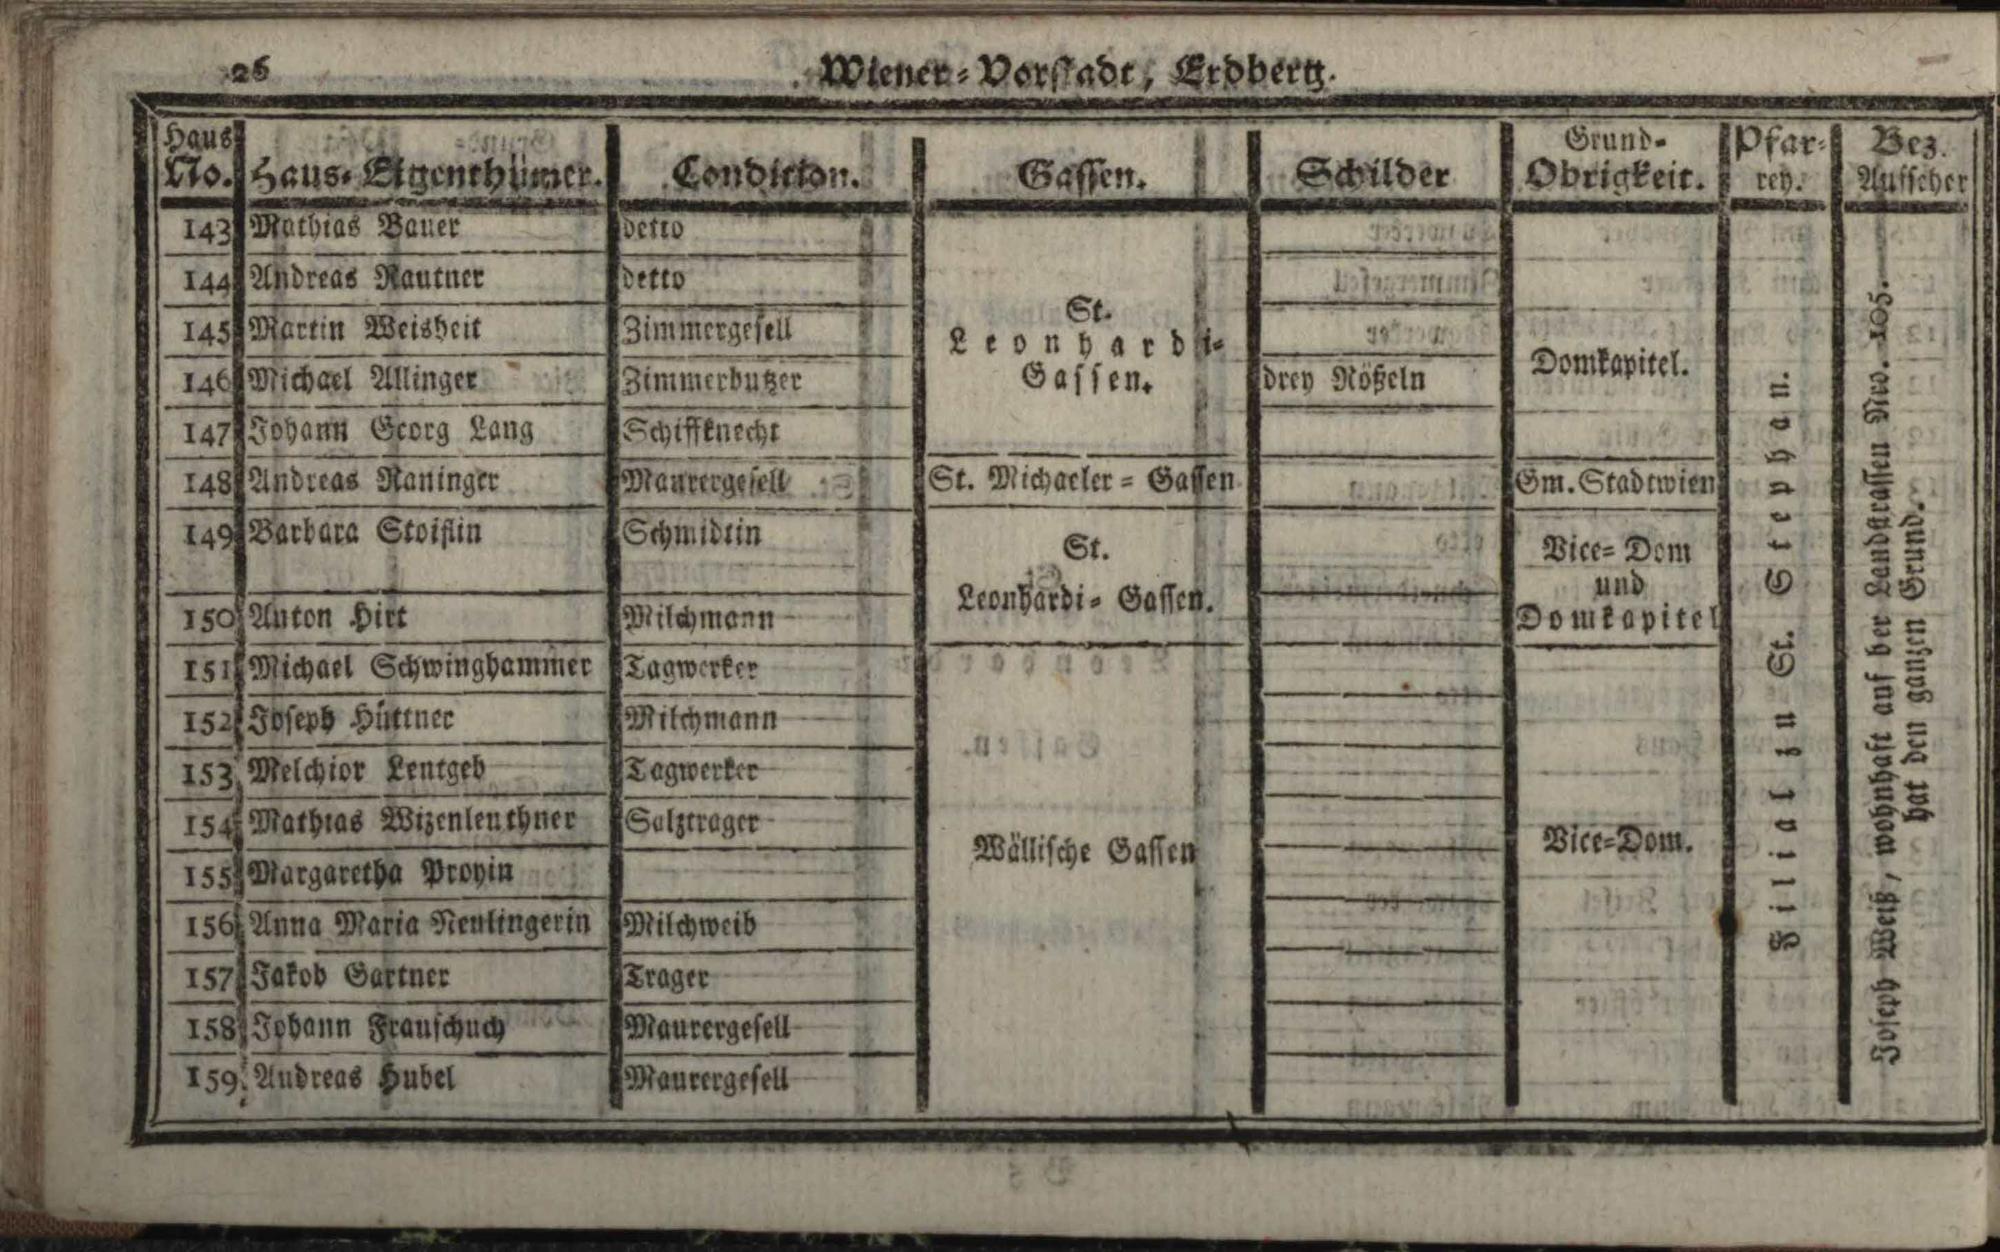 26
Wiener=Vorstadt, Erdberg.
Haus No. Haus=Eigenthümer. Condition. Gassen. Schilder Grund=Obrigkeit. Pfar=rey. Bez. Aufseher
143 Mathias Bauer detto
144 Andreas Rautner detto
145 Martin Weisheit Zimmergesell
146 Michael Allinger Zimmerbutzer drey Rößeln
147 Johann Georg Lang Schiffknecht
St.
Leonhardi=
Gassen.
Domkapitel.
148 Andreas Raninger Maurergesell St. Michaeler=Gassen Gm. Stadtwien
149 Barbara Stoißin Schmidtin
150 Anton Hirt Milchmann
St.
Leonhardi=Gassen.
Vice=Dom
und
Domkapitel
151 Michael Schwinghammer Tagwerker
152 Joseph Hüttner Milchmann
153 Melchior Leutgeb Tagwerker
154 Mathias Wizenleuthner Salztrager
155 Margaretha Proyin
156 Anna Maria Neulingerin Milchweib
157 Jakob Gartner Trager
158 Johann Frauschuch Maurergesell
159 Andreas Hubel Maurergesell
Wällische Gassen
Vice=Dom.
Filial zu St. Stephan.
Joseph Weiß, wohnhaft auf der Landstrassen Nro. 105.
hat den ganzen Grund.